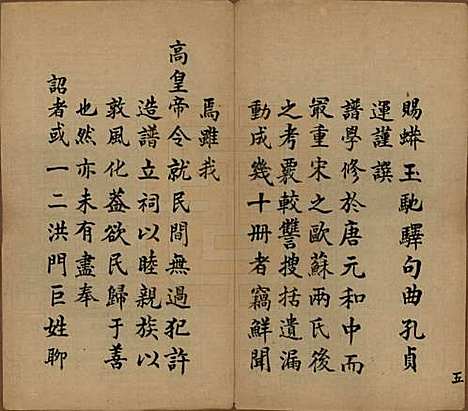 賜蟒玉馳驛句曲孔貞
運謹譔
譜學修於唐元和中而
最重宋之歐蘇兩氏後
之考覈較讐搜括遺漏
動成幾十册者竊鮮聞
五
焉雖我
高皇帝令就民間無過犯許
造譜立祠以睦親族以
敦風化葢欲民歸于善
也然亦未有盡奉
詔者或一二洪門巨姓聊